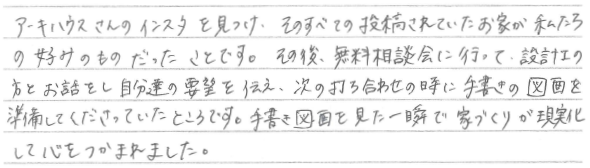 アーキハウスさんのインスタを見つけ、そのすべての投稿されていたお家が私たち
の好みのものだったことです。その後、無料相談会に行って、設計士の
方とお話をし自分達の要望を伝え、次の打ち合わせの時に手書きの図面を
準備してくださっていたところです。手書き図面を見た一瞬で家づくりが現実化
して心をつかまれました。